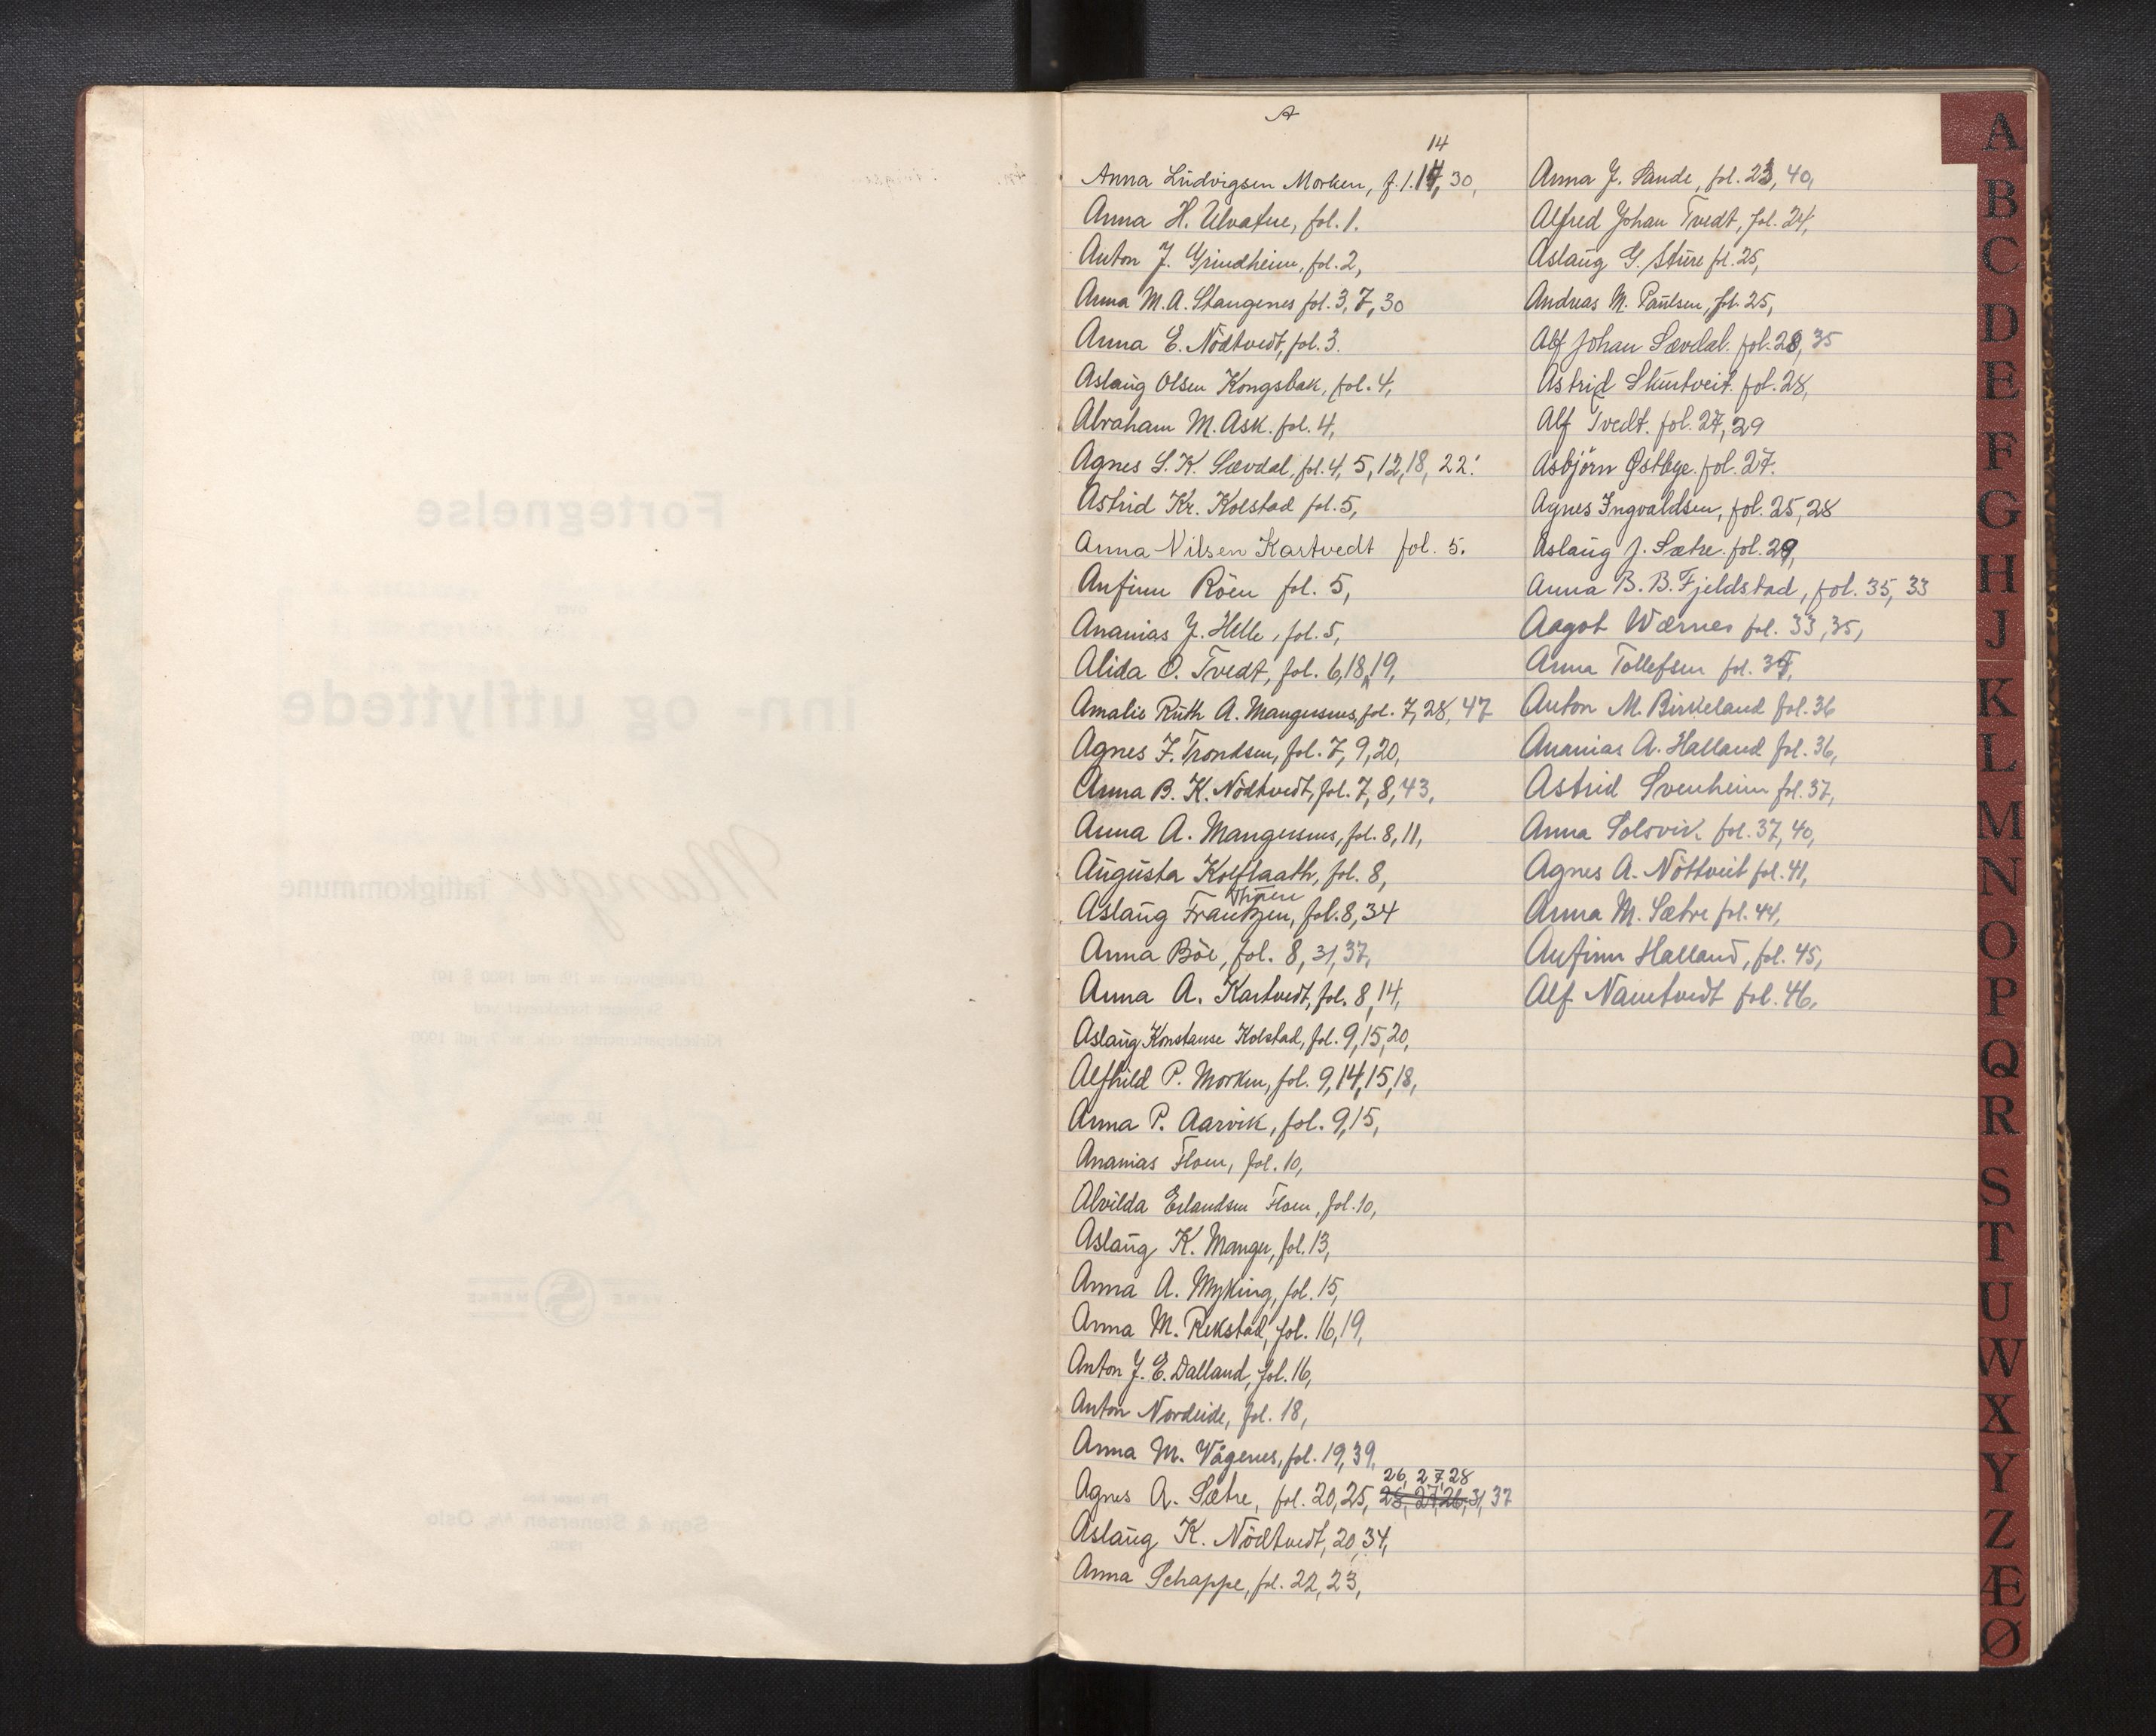 Fortegnelse
inn- og utflyttede
Manger fattigkommune
Sem & Stenersen A/S, Oslo
1930.
A
14
Anna Lüdvigsen Morken, f. 1. 14, 30,
Anna H. Ulvatne, fol. 1.
Anton J. Grindheim, fol. 2,
Anna M. A. Stangenes fol. 3, 7, 30
Anna E. Nödtvedt, fol. 3.
Aslaüg Olsen Kongsbak, fol. 4,
Abraham M. Ask. fol. 4,
Agnes S. K. Sævdal, fol. 4, 5, 12, 18, 22.
Astrid Kr. Kolstad fol. 5,
Anna Nilsen Kartvedt fol. 5.
Anfinn Röen fol. 5,
Ananias J. Helle, fol. 5,
Alida O. Tvedt, fol. 6, 18, 19,
Amalie Rüth A. Mangersnes, fol. 7, 28, 47
Agnes F. Trondsen, fol. 7, 9, 20,
Anna B. K. Nödtvedt, fol. 7, 8, 43,
Anna A. Mangersnes, fol. 8, 11,
Aügüsta Kolflaath, fol. 8,
Thüen
Aslaüg Frantzen, fol. 8, 34
Anna Böe, fol. 8, 31, 37,
Anna A. Kartvedt, fol. 8, 14,
Aslaüg Konstanse Kolstad, fol. 9, 15, 20,
Alfhild P. Morken, fol. 9, 14, 15, 18,
Anna P. Aarvik, fol. 9, 15,
Ananias Flom, fol. 10,
Alvilda Erlandsen Flom, fol. 10,
Aslaüg K. Manger, fol. 13,
Anna A. Myking, fol. 15,
Anna M. Rekstad, fol. 16, 19,
Anton J. E. Dalland, fol. 16,
Anton Nordeide, fol. 18,
Anna M. Vågenes, fol. 19, 39,
26, 27, 28
Agnes A. Sætre, fol. 20, 25, 31, 37
Aslaüg K. Nödtvedt, 20, 34,
Anna Schappe, fol. 22, 23,
Anna J. Sande, fol. 23, 40,
Alfred Johan Tvedt, fol. 24,
Aslaüg G. Stüre fol. 25,
Andreas M. Paülsen, fol. 25,
Alf Johan Sævdal. fol. 28, 35
Astrid Skürtveit. fol. 28,
Alf Tvedt. fol. 27, 29
Asbjörn Østbye. fol. 27.
Agnes Ingvaldsen, fol. 25, 28
Aslaüg J. Sætre. fol. 29,
Anna B. B. Fjeldstad, fol. 35, 33
Aagot Wærnes fol. 33, 35,
Anna Tollefsen fol. 35,
Anton M. Birkeland fol. 36
Ananias A. Halland fol. 36,
Astrid Svenheim fol. 37,
Anna Solsvik fol. 37, 40,
Agnes A. Nöttveit fol. 41,
Anna M. Sætre fol. 44,
Anfinn Halland, fol. 45,
Alf Namtvedt fol. 46,
A
B
C
D
E
F
G
H
J
K
L
M
N
O
P
Q
R
S
T
U
W
X
Y
Z
Æ
Ø